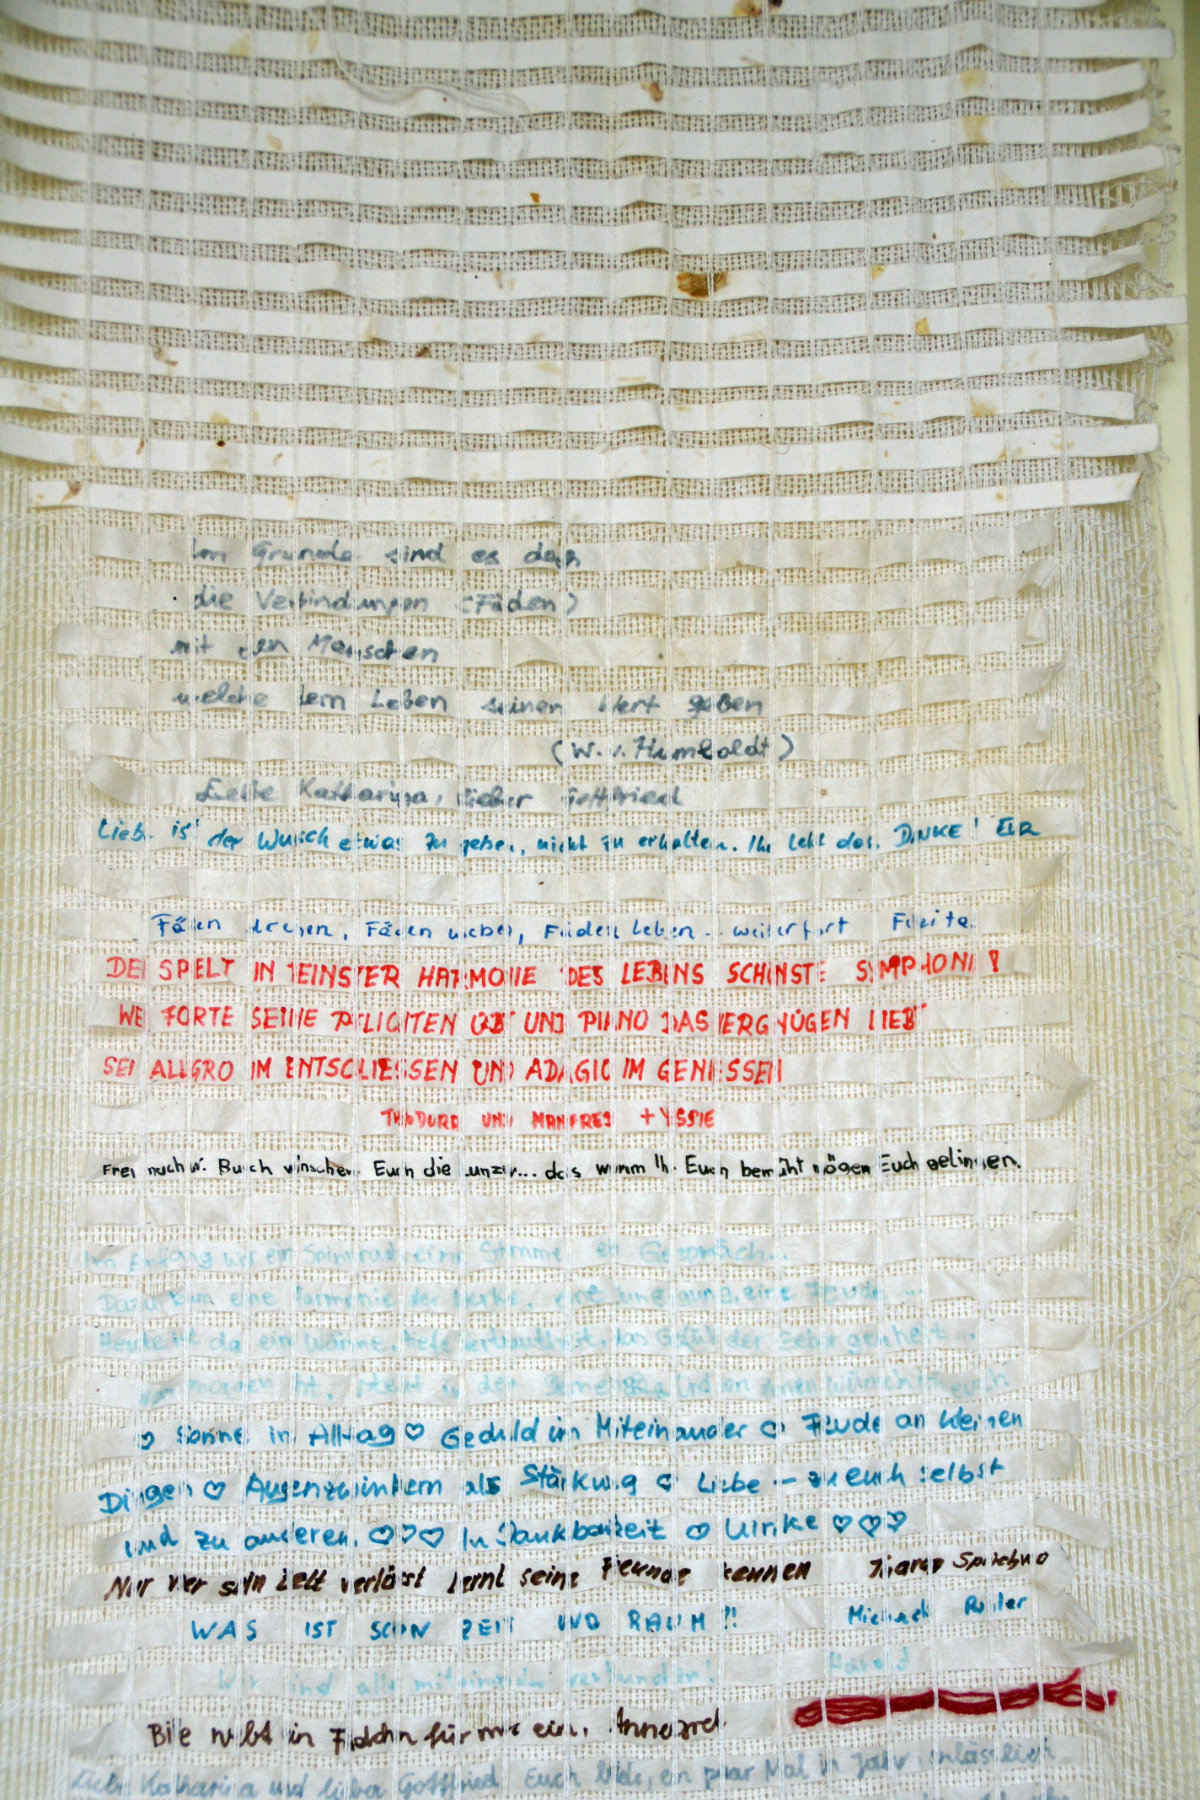 Im Grunde sind es doch
die Verbindungen (Fäden)
mit den Menschen
welche dem Leben seinen Wert geben
(W. v. Humboldt)
Liebe Katharina, lieber Gottfried
Liebe ist der Wunsch etwas zu geben, nicht zu erhalten. Ihr lebt das. DANKE!
Fäden drehen, Fäden weben, Fäden leben .. weiterfort
DER SPIELT IN REINSTER HARMONIE DES LEBENS SCHÖNSTE SYMPHONIE
WER FORTE SEINE PFLICHTEN ÜBT UND PIANO DAS VERGNÜGEN LIEBT
SEI ALLEGRO IM ENTSCHLIESSEN UND ADAGIO IM GENIESSEN
UND MANFRED +
Frei nach W. Busch wünschen Euch die unzer... das warum Ihr Euch bemüht mögen Euch gelingen.
Am Anfang war ein Spinnrad, eine Stimme, ein Gespräch...
Dazu kam eine Harmonie der Werke, eine eine Freude ...
Heute ist da eine Wärme, tiefe Vertrautheit, das Gefühl der Geborgenheit...
morgen ist, steht in den
♡ Sonne im Alltag ♡ Geduld im Miteinander ♡ Freude an kleinen
Dingen ♡ Augenzwinkern als Stärkung ♡ Liebe – zu euch selbst
und zu anderen. ♡♡♡ In Dankbarkeit ♡ Ulrike ♡♡♡
Nur wer sein Zelt verlässt lernt seine Freunde kennen
WAS IST SCHON ZEIT UND RAUM ?! Michael
Wir sind alle miteinander verbunden! Harald
Bitte webt ein Fädchen für mich ein. Annegret
Liebe Katharina und lieber Gottfried Euch beide, ein paar Mal im Jahr anlässlich